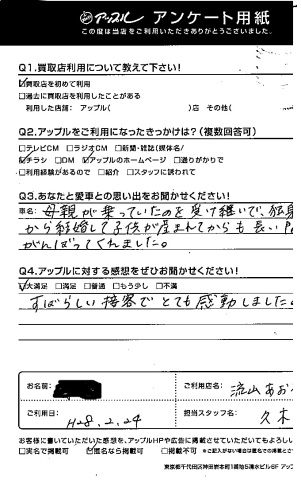 アップル アンケート用紙
この度は当店をご利用いただきありがとうございました。
Q1.買取店利用について教えて下さい!
☑買取店を初めて利用
□過去に買取店を利用したことがある
利用した店舗: アップル( )店 その他(
Q2.アップルをご利用になったきっかけは?(複数回答可)
□テレビCM □ラジオCM □新聞・雑誌(媒体名/
☑チラシ □DM ☑アップルのホームページ □通りがかりで
□利用経験があるので □紹介 □スタッフに誘われて
Q3.あなたと愛車との思い出をお聞かせください!
車名: 母親が乗っていたのを受け継いで、独身
から結婚して子供が産まれてからも長い
がんばってくれました。
Q4.アップルに対する感想をぜひお聞かせください!
☑大満足 □満足 □普通 □もう少し □不満
すばらしい接客でとても感動しました。
お名前:
ご利用店名: 流山あお
ご利用日: H28.2.24
担当スタッフ名: 久木
お客様に書いていただいた感想を、アップルHPや広告に掲載させていただいてもよろしい
□実名で掲載可 ☑匿名なら掲載可 □掲載不可 ※ご記入がない場合は匿名での掲載とさ
東京都千代田区神田岩本町1番地5清水ビル6F アップ